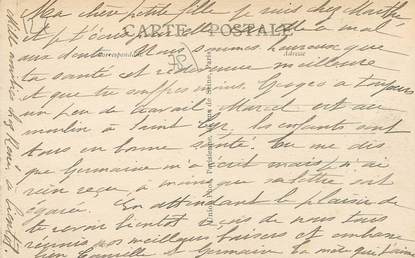 Ma chère petite fille je suis chez Marthe
et pt'être elle a mal
CARTE POSTALE
aux dents. Nous sommes heureux que
Correspondance
Adresse
ta santé est redevenue meilleure
et que tu souffres moins. Georges a toujours
un peu de travail Marcel est au
moulin à Saint Cyr, les enfants sont
tous en bonne santé. Tu me dis
que Germaine m'a écrit mais j'ai
rien reçu, à moins que sa lettre soit
égarée. En attendant le plaisir de
te revoir bientôt reçois de nous tous
réunis nos meilleurs baisers et embrasse
bien Camille et Germaine la mère qui t'aime
chez René, à bientôt